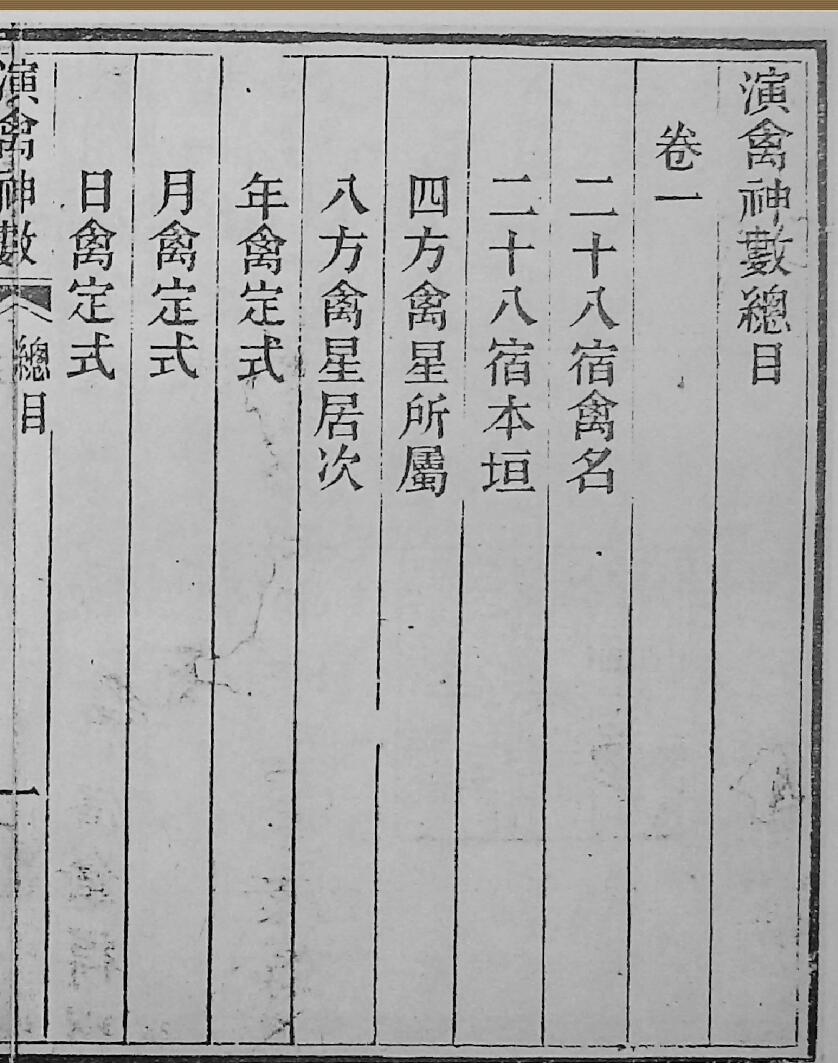 演禽神數總目
卷一
二十八宿禽名
二十八宿本垣
四方禽星所屬
八方禽星居次
年禽定式
月禽定式
日禽定式
演禽神數
總目
一